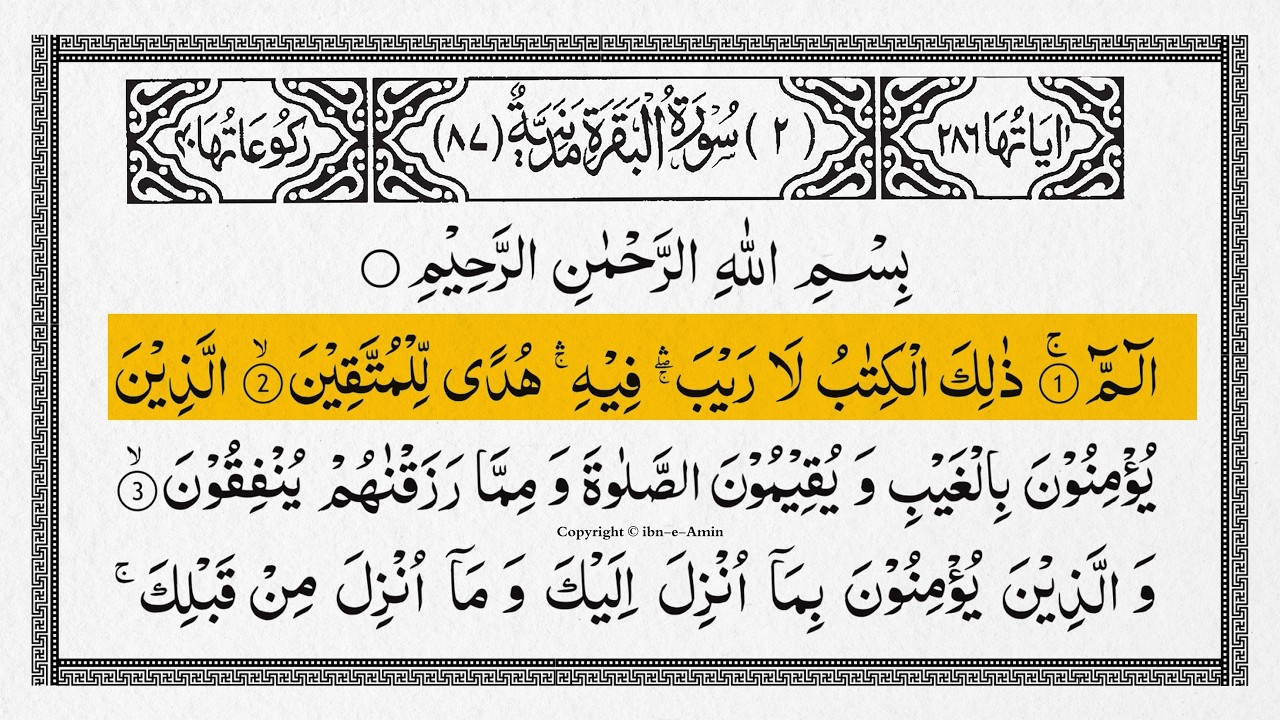 اٰیَاتُهَا ٢٨٦
(٢) سُوْرَةُ الْبَقَرَةِ مَدَنِيَّةٌ (٨٧)
رُكُوْعَاتُهَا ٤٠
بِسْمِ اللّٰهِ الرَّحْمٰنِ الرَّحِيْمِ ○
الٓـمّٓ ۚ ① ذٰلِكَ الْكِتٰبُ لَا رَيْبَ ۛۖۚ فِيْهِ ۛۚ هُدًى لِّلْمُتَّقِيْنَ ۙ ② الَّذِيْنَ
يُؤْمِنُوْنَ بِالْغَيْبِ وَ يُقِيْمُوْنَ الصَّلٰوةَ وَ مِمَّا رَزَقْنٰهُمْ يُنْفِقُوْنَ ۙ ③
Copyright © ibn-e-Amin
وَ الَّذِيْنَ يُؤْمِنُوْنَ بِمَاۤ اُنْزِلَ اِلَيْكَ وَ مَاۤ اُنْزِلَ مِنْ قَبْلِكَ ۚ